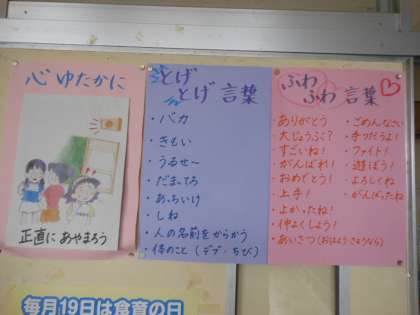 心ゆたかに
正直にあやまろう
とげ
とげ 言葉
・バカ
・きもい
・うるせ〜
・だまってろ
・あっちいけ
・しね
・人の名前をからかう
・体のこと(デブ・ちび)
ふわ
ふわ 言葉
・ありがとう
・大じょうぶ?
・すごいね!
・がんばれ!
・おめでとう
・上手!
・よかったね!
・仲よくしよう!
・あいさつ(おはよう さようなら)
・ごめんなさい
・手つだうよ!
・ファイト!
・遊ぼう!
・よろしくね
・がんばったね
毎月19日は食育の日